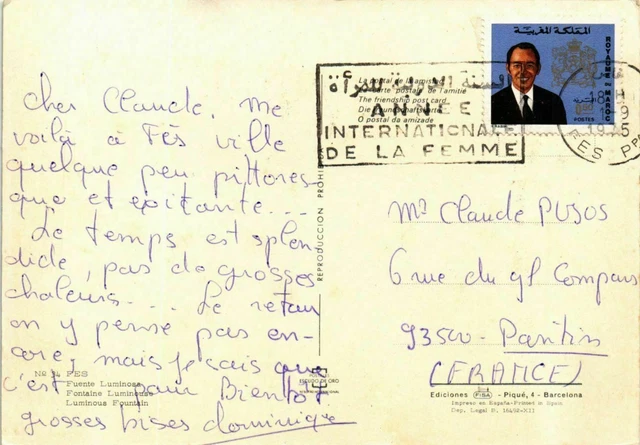 cher Claude. Me
voilà à Fès ville
quelque peu pittores-
que et exitante...
Le temps est splen
dide, pas de grosses
chaleurs... Le retour
on y pense pas en-
core, mais je sais que
c'est pour Bientôt
grosses bises dominique
Nº 34 FES
Fuente Luminosa
Fontaine Lumineuse
Luminous Fountain
REPRODUCCION PROHI
ESCUDO DE ORO
المملكة المغربية
ROYAUME DU MAROC
POSTES
La postal de la amistad
carte postale de l'amitié
The friendship post card
O postal da amizade
السنة الدولية للمرأة
ANNÉE
INTERNATIONALE
DE LA FEMME
18 H
1975
FES PPAL
Mr Claude PUJOS
6 rue du gl Compans
93500 - Pantin
(FRANCE)
Ediciones FISA - Piqué, 4 - Barcelona
Impreso en España-Printed in Spain
Dep. Legal B. 16492-XII